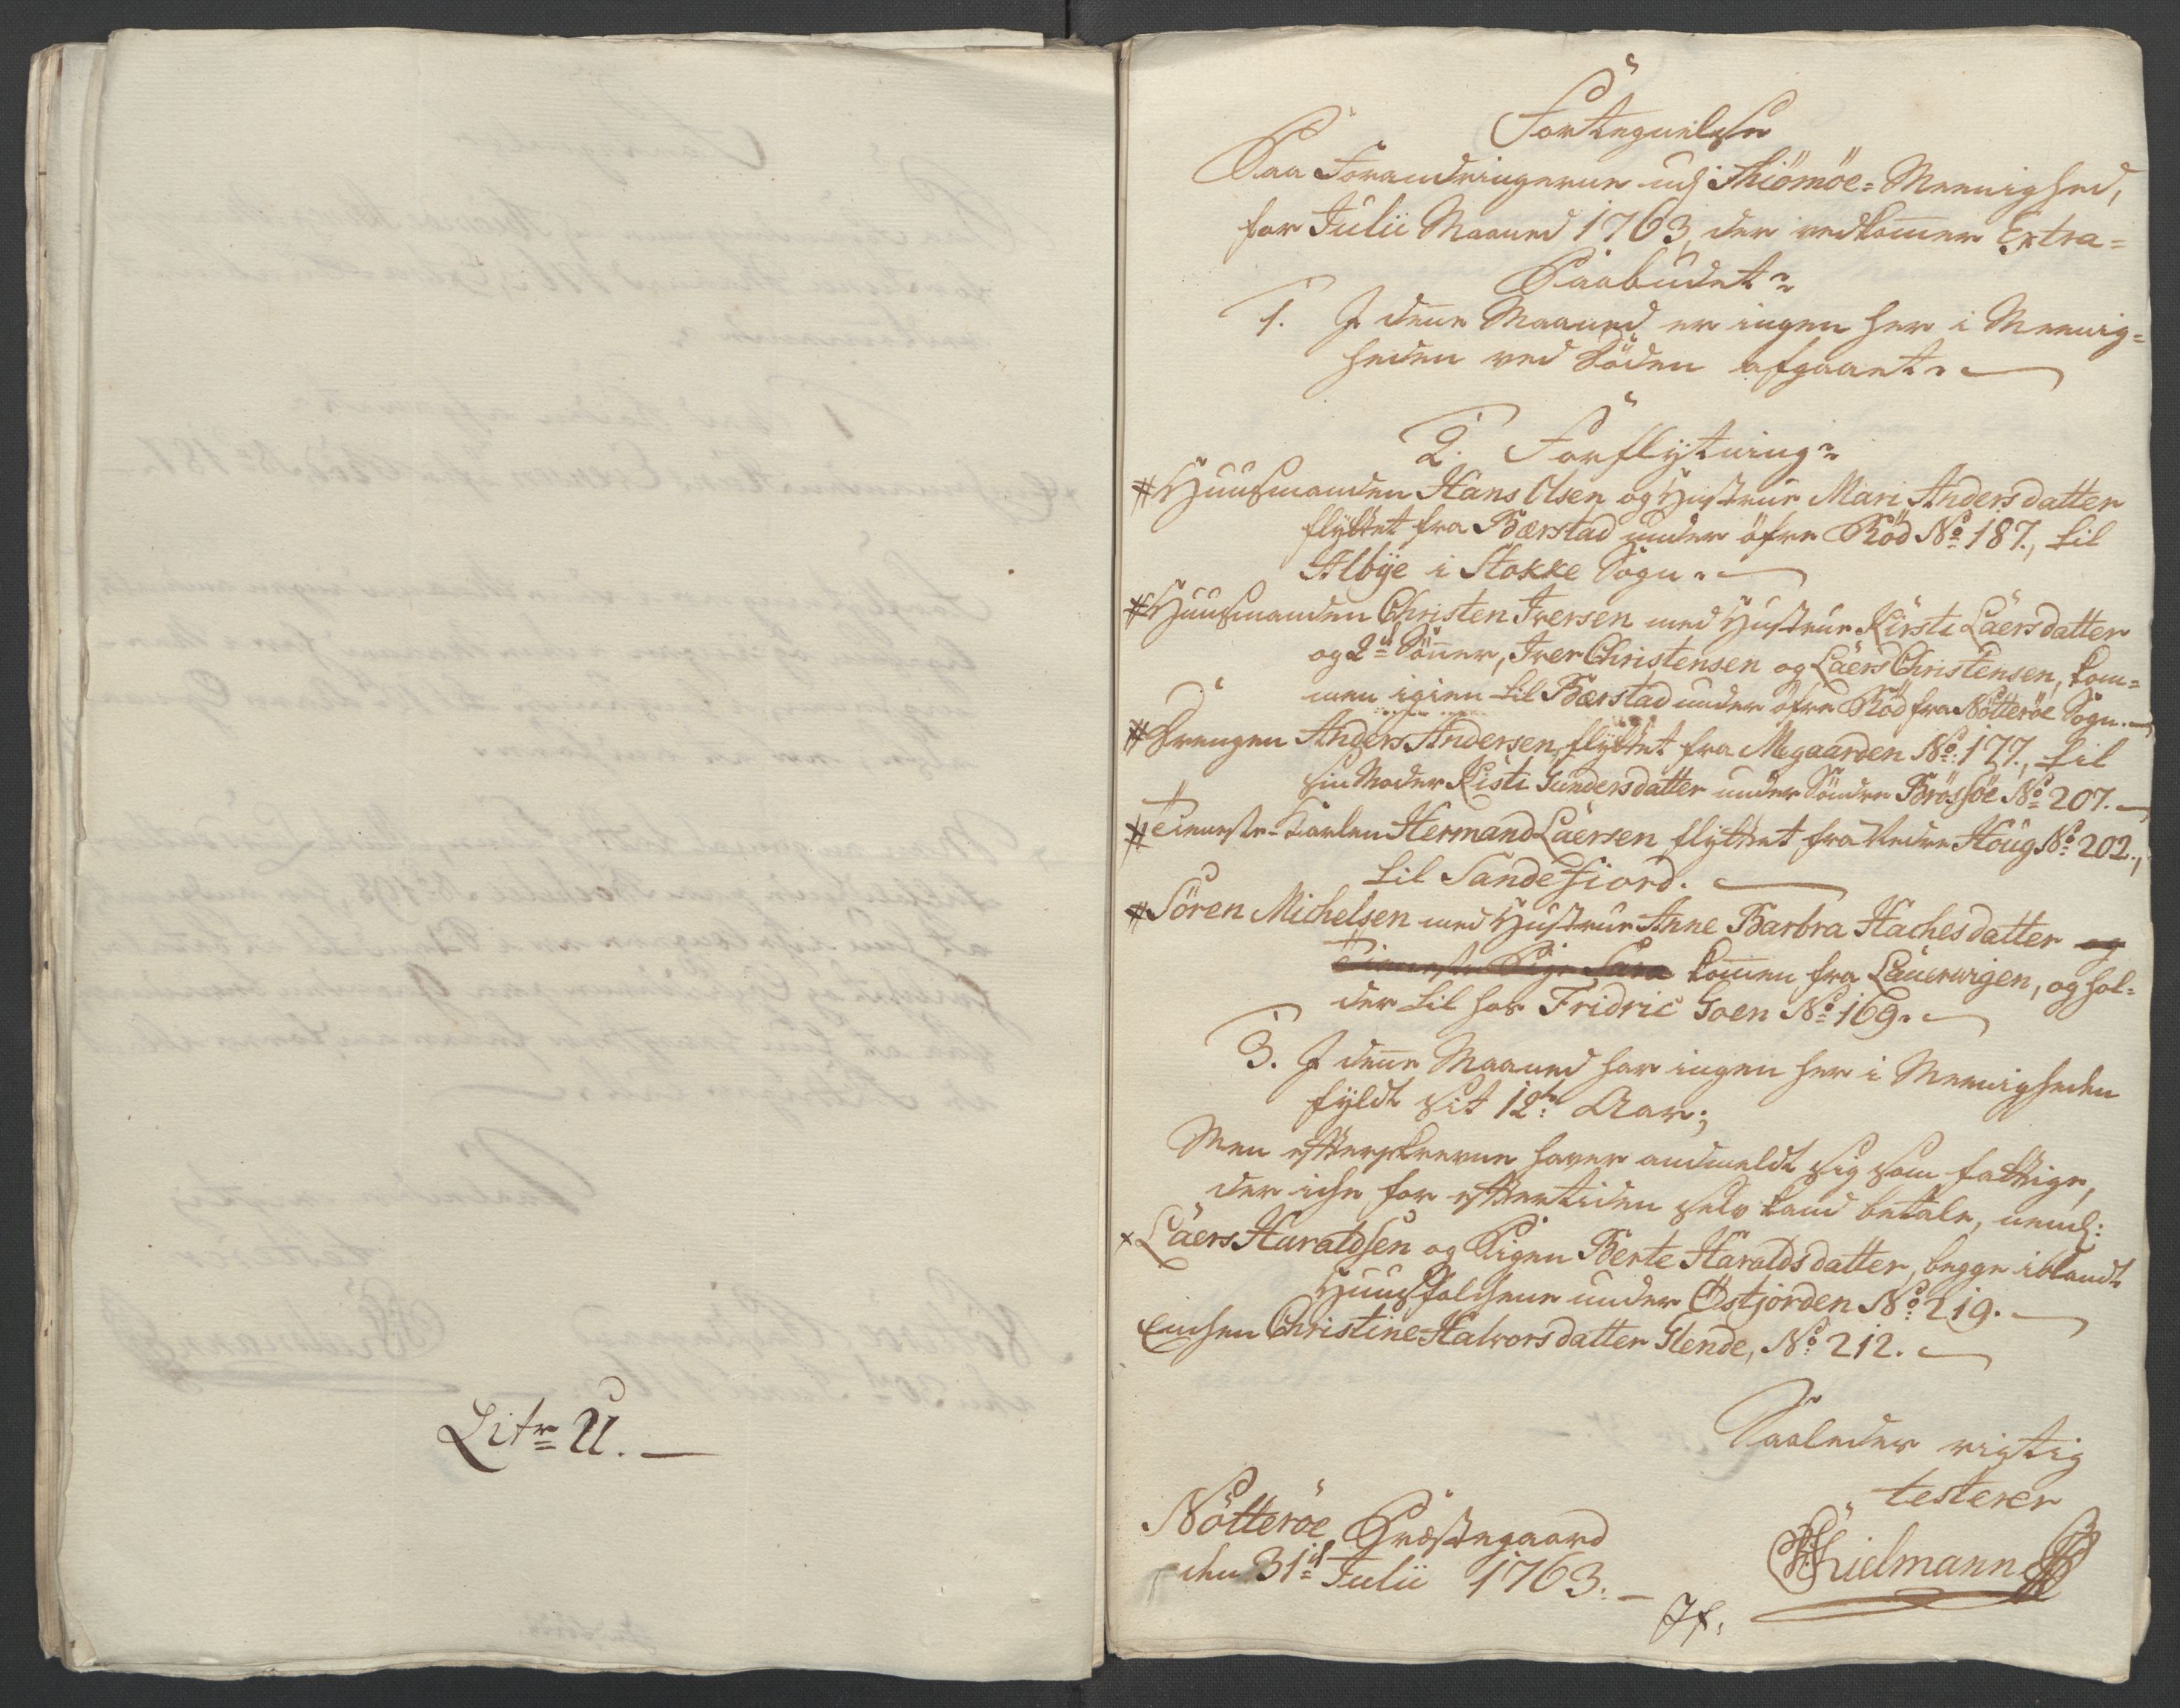 Litr U. —
Fortegnelse
Paa Forandringerne udj Thiömöe-Meenighed,
for Julii Maaned 1763, der vedkom̄er Extra-
Paabudet.
1. I den̄e Maaned er ingen her i Meenig-
heden ved Döden afgaaet. —
2. Forflytning.
# Huusmanden Hans Olsen og Hustrue Mari Andersdatter
flyttet fra Bærstad under öfre Röd No 187., til
Albÿe i Stokke Sogn. —
# Huusmanden Christen Iversen med Hustrue Kirsti Läersdatter
og 2de Sön̄er, Iver Christensen og Läers Christensen, kom-
men igien til Bærstad under öfre Röd fra Nötteröe Sogn. —
# Drengen Anders Andersen, flyttet fra Megaarden No: 177., til
sin Moder Kisti Gundersdatter under Söndre Brössöe No 207. —
# Tieneste-Karlen Hermand Läersen flyttet fra Nedre Houg No 202.,
til Sandefiord. —
# Sören Michelsen med Hustrue Anne Barbra Hachesdatter og
Tieneste Pige Sara kom̄en fra Lauerwigen, og hol-
der til hos Fridric Goen No 169. —
3. I den̄e Maaned har ingen her i Meenigheden
fyldt sit 12te Aar;
Men efterskrevne haver andmeldt sig som fattige,
der iche for eftertiden selv kand betale, nemlig:
x Läers Haraldsen og Pigen Berte Haraldsdatter, begge iblandt
Huusfolchene under Östjorden No 219. —
Enchen Christine Halvorsdatter Glende, No 212. —
Saaledes rigtig
testerer
Nötteröe Præstegaard
den 31te Julii 1763. —
Kielmann